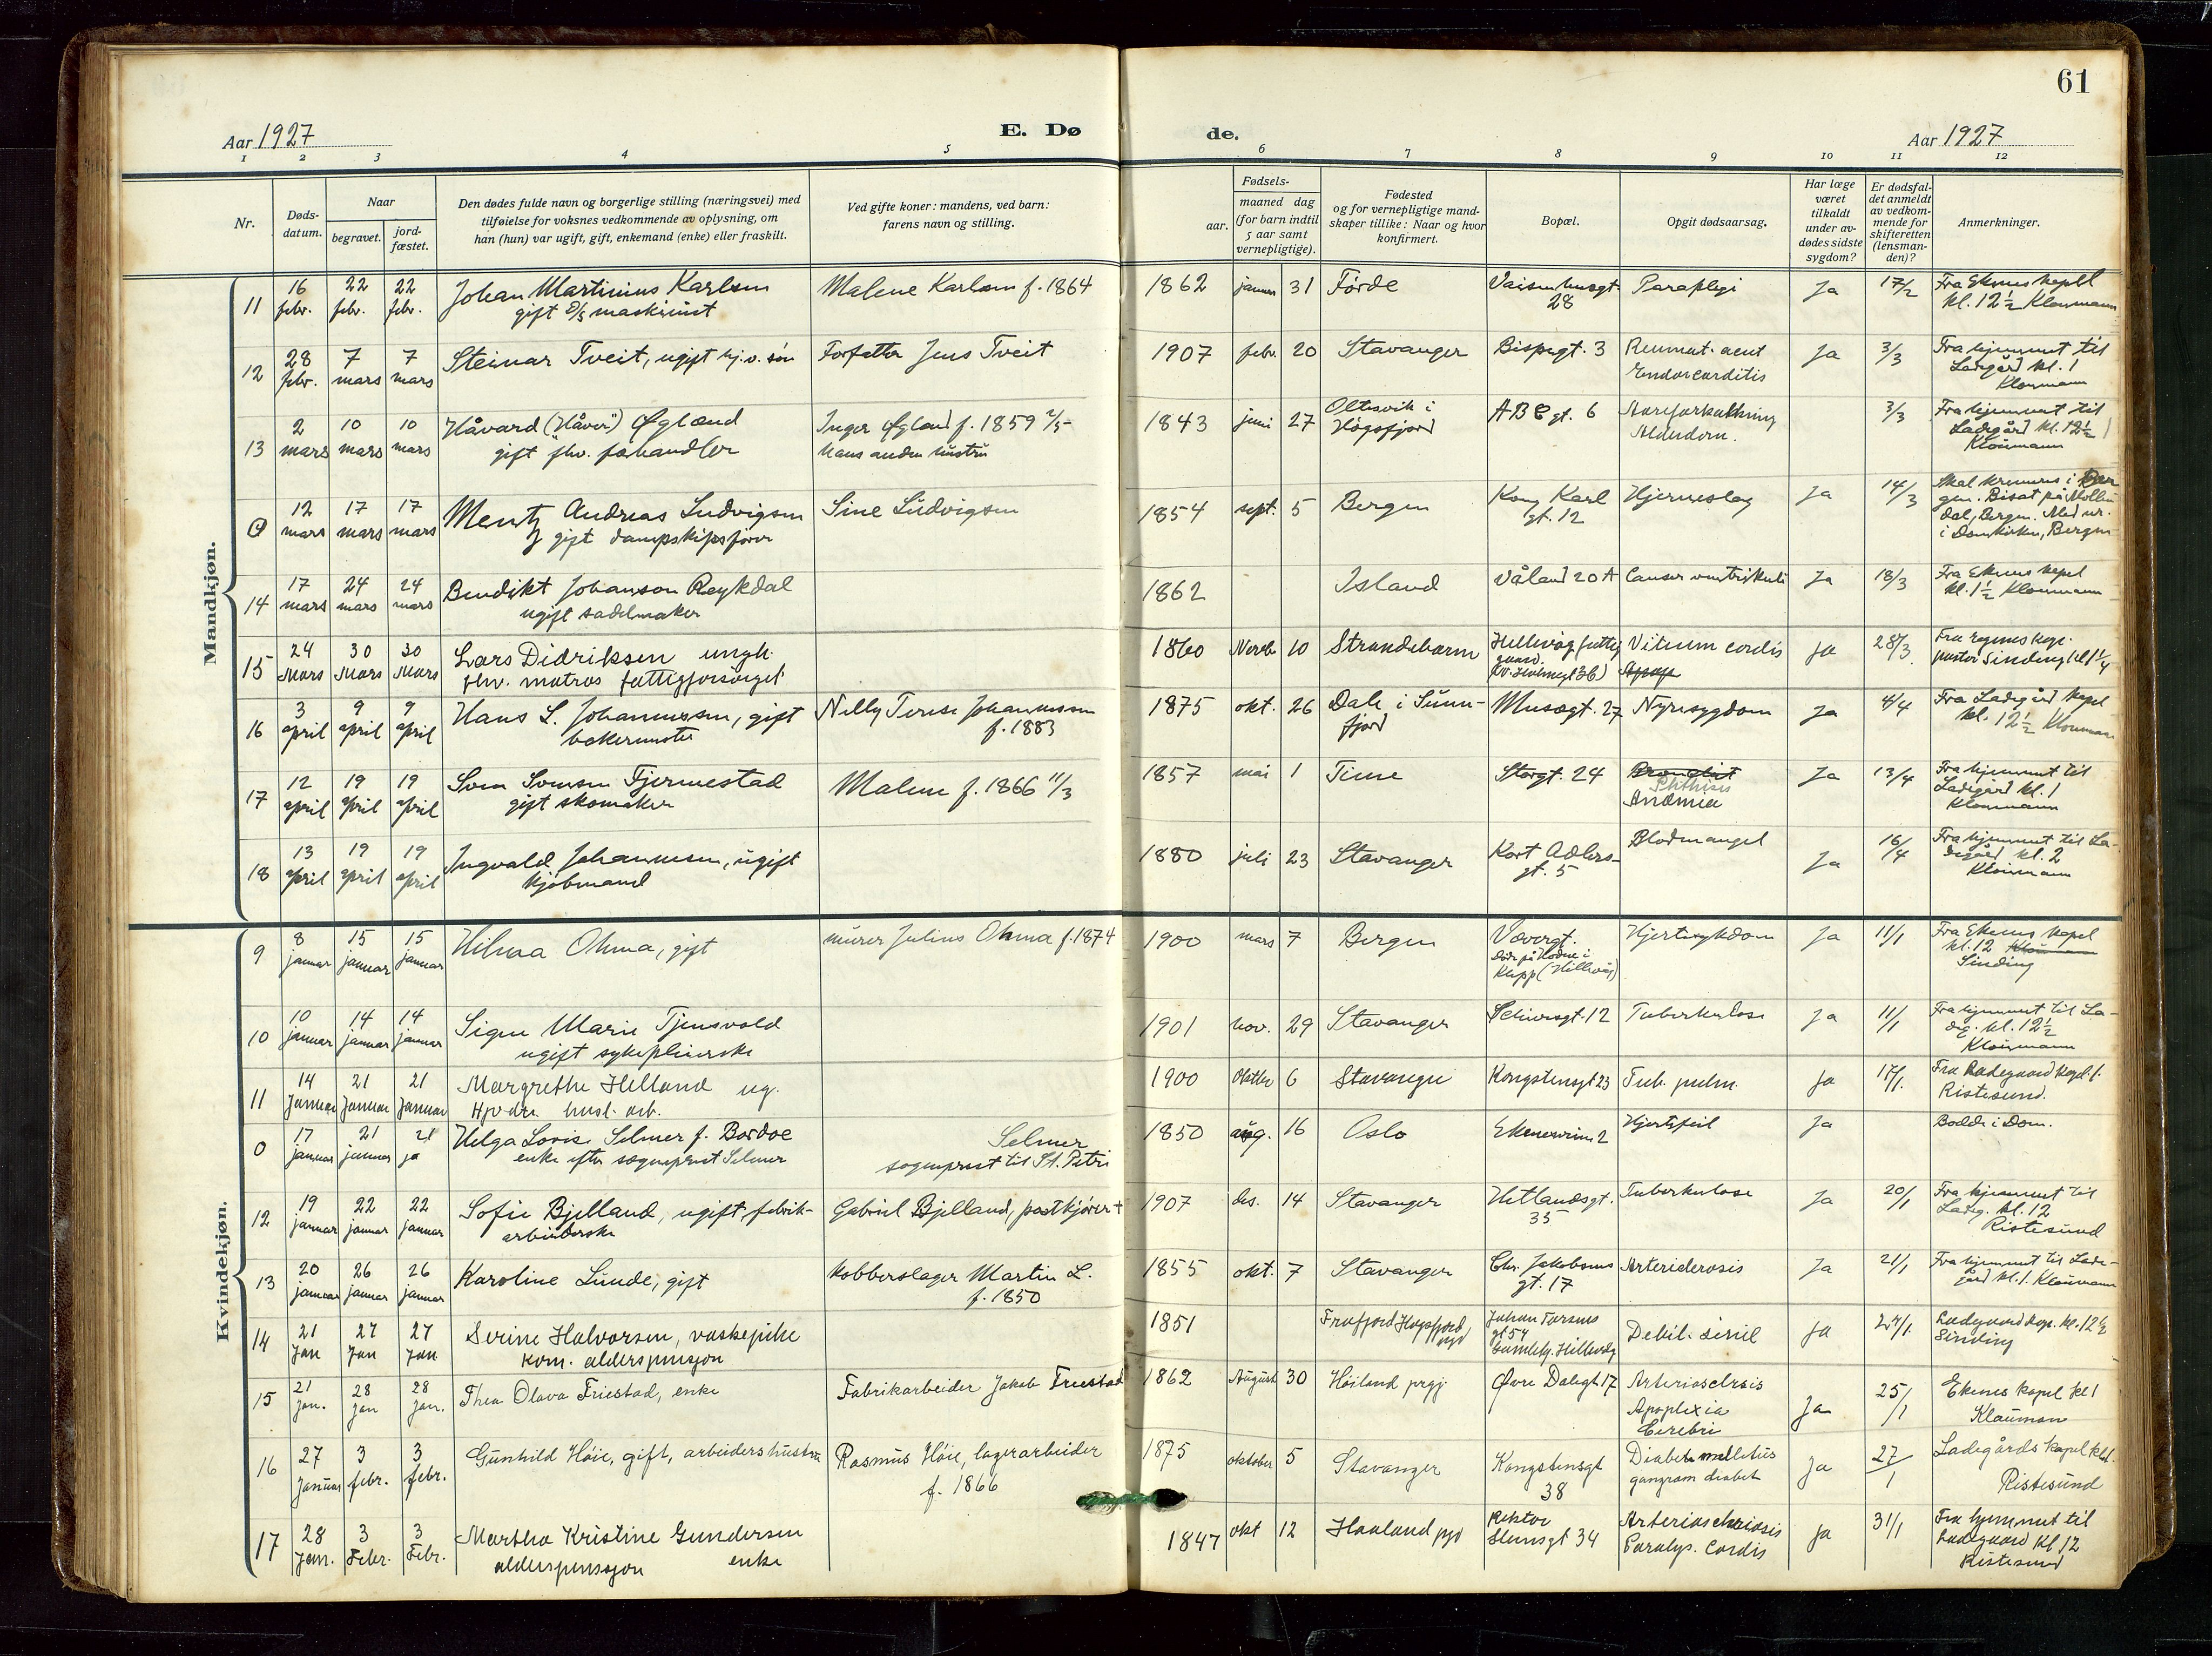 61
Aar 1927
E. Dø
de.
Aar 1927
1 2 3 4 5 6 7 8 9 10 11 12
Nr.
Døds-
datum.
Naar
begravet.
jord-
fæstet.
Den dødes fulde navn og borgerlige stilling (næringsvei) med
tilføielse for voksnes vedkommende av oplysning, om
han (hun) var ugift, gift, enkemand (enke) eller fraskilt.
Ved gifte koner: mandens, ved barn:
farens navn og stilling.
Fødsels-
aar.
maaned dag
(for barn indtil
5 aar samt
vernepligtige).
Fødested
og for vernepligtige mand-
skaper tillike: Naar og hvor
konfirmert.
Bopæl.
Opgit dødsaarsag.
Har læge
været
tilkaldt
under av-
dødes sidste
sygdom?
Er dødsfal-
det anmeldt
av vedkom-
mende for
skifteretten
(lensman-
den)?
Anmerkninger.
Mandkjøn.
11 16 febr. 22 febr. 22 febr. Johan Martinius Karlsen
gift D/S maskinist
Malene Karlsen f. 1864
1862 januar 31 Førde Vaisenhusgt 28 Paraplegi Ja 17/2 Fra Ekenes kapell
kl. 12½ Kloumann
12 28 febr. 7 mars 7 mars Steinar Tveit, ugift hj.v. søn
Forfatter Jens Tveit
1907 febr. 20 Stavanger Bispegt. 3 Reumat. acut
Endocarditis Ja 3/3 Fra hjemmet til
Ladegård kl. 1
Kloumann
13 2 mars 10 mars 10 mars Håvard (Håver) Øgland
gift fhv. forhandler
Inger Øgland f. 1859 2/5
hans anden hustru
1843 juni 27 Oltesvik i
Høgsfjord ABC gt. 6 Aareforkalkning
Alderdom. 3/3 Fra hjemmet til
Ladegård kl. 12½
Kloumann
0 12 mars 17 mars 17 mars Mentz Andreas Ludvigsen
gift dampskipsfører
Sine Ludvigsen
1854 sept. 5 Bergen Kong Karl
gt. 12 Hjerneslag Ja 14/3 Skal kremeres i Ber
gen. Bisat på Møllen
dal, Bergen. Med ur.
i Domkirken, Bergen
14 17 mars 24 mars 24 mars Bendikt Johanson Reykdal
ugift sadelmaker
1862 Island Våland 20 A Cancer ventrikuli Ja 18/3 Fra Ekenes kapel
kl. 1½ Kloumann
15 24 Mars 30 Mars 30 Mars Lars Didriksen ungk.
fhv. matros fattigforsørget
1860 Novbr 10 Strandebarm Hillevåg fattig
gaard. Vitium cordis Ja 28/3
pastor Sinding kl 1¼
16 3 april 9 april 9 april Hans L. Johannessen, gift
bakermester
Nelly Terese Johannessen
f. 1883
1875 okt. 26 Dale i Sunn-
fjord Musegt. 27 Nyresygdom Ja 4/4 Fra Ladegård kapel
kl. 12½ Kloumann
17 12 april 19 april 19 april Sven Svensen Fjermestad
gift skomaker
Malene f. 1866 11/3
1857 mai 1 Time Storgt. 24 Phthisis
Anæmia Ja 13/4 Fra hjemmet til
Ladegård kl. 1
Kloumann
18 13 april 19 april 19 april Ingvald Johannesen, ugift
kjøbmand
1880 juli 23 Stavanger Kort Adlers-
gt. 5 Blodmangel Ja 16/4 Fra hjemmet til La-
degård kl. 2
Kloumann
Kvindekjøn.
9 8 januar 15 januar 15 januar Hilma Ohma, gift
murer Julius Ohma f. 1874
1900 mars 7 Bergen Vævergt.
døde på Hodne i
Klepp (Hillevåg) Hjertesykdom Ja 11/1 Fra Ekenes kapel
kl. 12 Kloumann
Sinding
10 10 januar 14 januar 14 januar Signe Marie Tjensvold
ugift sykepleierske
1901 nov. 29 Stavanger Schivesgt. 12 Tuberkulose Ja 11/1 Fra hjemmet til La-
deg. kl. 12½
Kloumann
11 14 Januar 21 Januar 21 Januar Margrethe Helland ug.
Hjv. dtr. husl. arb.
1900 Oktbr 6 Stavanger Kongstensgt 23 Tub. pulm. Ja 17/1. Fra Ladegaard kapel 1.
Ristesund.
0 17 januar 21 januar 21 ja Helga Lovise Selmer f. Bordoe
enke efter sogneprest Selmer
Selmer
sogneprest til St. Petri
1850 aug. 16 Oslo Ekenesvein 2 Hjertefeil Ja Bodde i Dom.
12 19 januar 22 januar 22 januar Sofie Bjelland, ugift, fabrik-
arbeiderske
Gabriel Bjelland, postkjører +
1907 des. 14 Stavanger Hetlandsgt.
35 Tuberkulose Ja 20/1 Fra hjemmet til
Ladeg. kl. 12
Ristesund
13 20 januar 26 januar 26 januar Karoline Lunde, gift
kobberslager Martin L.
f. 1850
1855 okt. 7 Stavanger Chr. Jakobsens
gt. 17 Arteriderosis Ja 21/1 Fra hjemmet til Lade-
gård kl. 1. Kloumann
14 21 Jan 27 Jan 27 Jan Serine Halvorsen, vaskepike
kom. alderspensjon
1851 Frafjord Høgsfjord,
pgd Johan Torsens
gt 54
Gamleh. Hillevåg Debil. senil Ja 24/1. Ladegaard kap. kl. 12½
Sinding
15 21 Jan. 28 Jan 28 Jan. Thea Olava Friestad, enke
Fabrikarbeider Jakob Friestad
1862 August 30 Høiland prgj Øvre Dalegt 17 Arteriosclrsis
Apoplexia
Cerebri Ja 25/1 Ekenes kapel kl 1
Klauman
16 27 Januar 3 febr. 3 febr. Gunhild Høie, gift, arbeiders hustru
Rasmus Høie, lagerarbeider
f. 1866
1875 oktober 5 Stavanger Kongstensgt
38 Diabetes mellitus
gangræn diabet Ja 27/1 Ladegårds kapel kl 1.
Ristesund
17 28 Jan. 3 Febr. 3 Febr. Martha Kristine Gundersen
alderspensjon enke
1847 okt 12 Haaland pgd Rektor
Steensgt 34 Arterioscleriosis
Paralys. Cordis Ja 31/1 Fra hjemmet til
Ladegaard kl 12
Ristesund